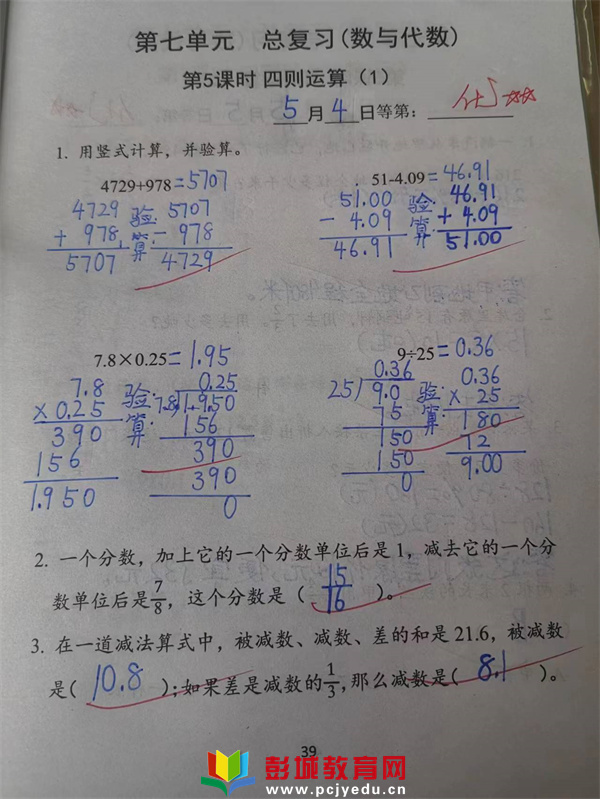 第七单元 总复习(数与代数)
第5课时 四则运算（1）
5月4日等第：优
1. 用竖式计算，并验算。
4729+978=5707
51-4.09=46.91
4729 验: 5707
+ 978 算: - 978
5707 4729
51.00 验: 46.91
- 4.09 算: + 4.09
46.91 51.00
7.8×0.25=1.95
9÷25=0.36
7.8 验: 0.25
×0.25 算: 7.8)1.950
390 156
156 390
1.950 390
0
0.36 验: 0.36
25)9.0 算: × 25
75 180
150 72
150 9.00
0
2. 一个分数，加上它的一个分数单位后是 1，减去它的一个分
数单位后是7/8，这个分数是（15/16）。
3. 在一道减法算式中，被减数、减数、差的和是 21.6，被减数
是(10.8);如果差是减数的1/3,那么减数是(8.1)。
39
彭城教育网
www.pcjyedu.cn